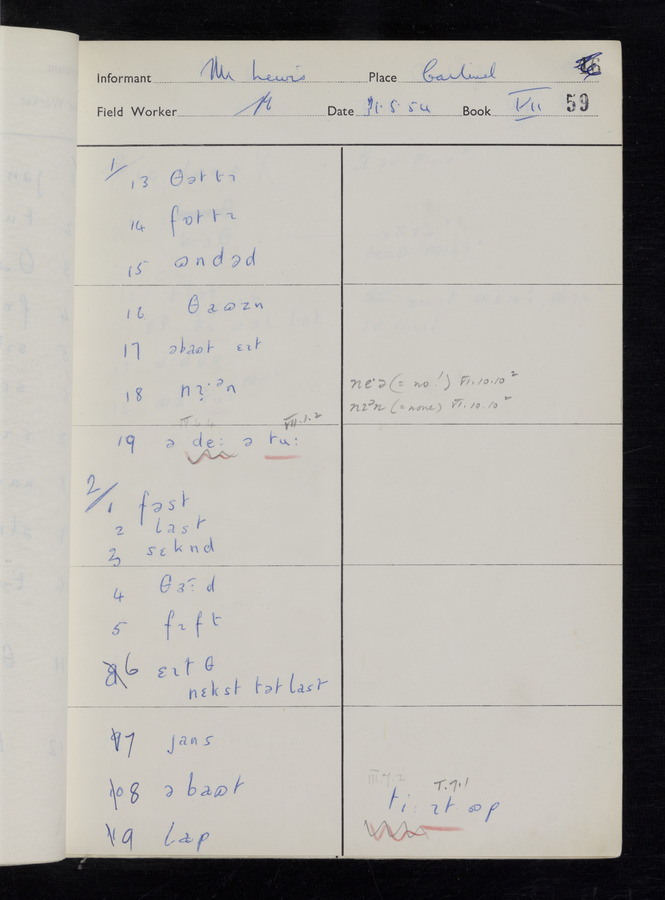 Informant Mr Lewis Place Cartmel
Field Worker Date 31.5.54 Book VII 59
1/ 13 θəttɪ
14 fɒttɪ
15 ɷndəd
16 θaɷzn
17 əbaɷt ɛɪt
18
neˑə (= no!) VI.10.10²
nɪᵊn (= none) VI.10.10²
VII.1.2
19 ə deː ə tuː
2/ 1 fəst
2 last
3 sɛknd
4 θɜːd
5 fɪft
6 ɛɪtθ
nɛkst tət last
7 jans
8 əbaɷt
9 lap
III.9.2 I.7.1
tiː ɪt ɷp